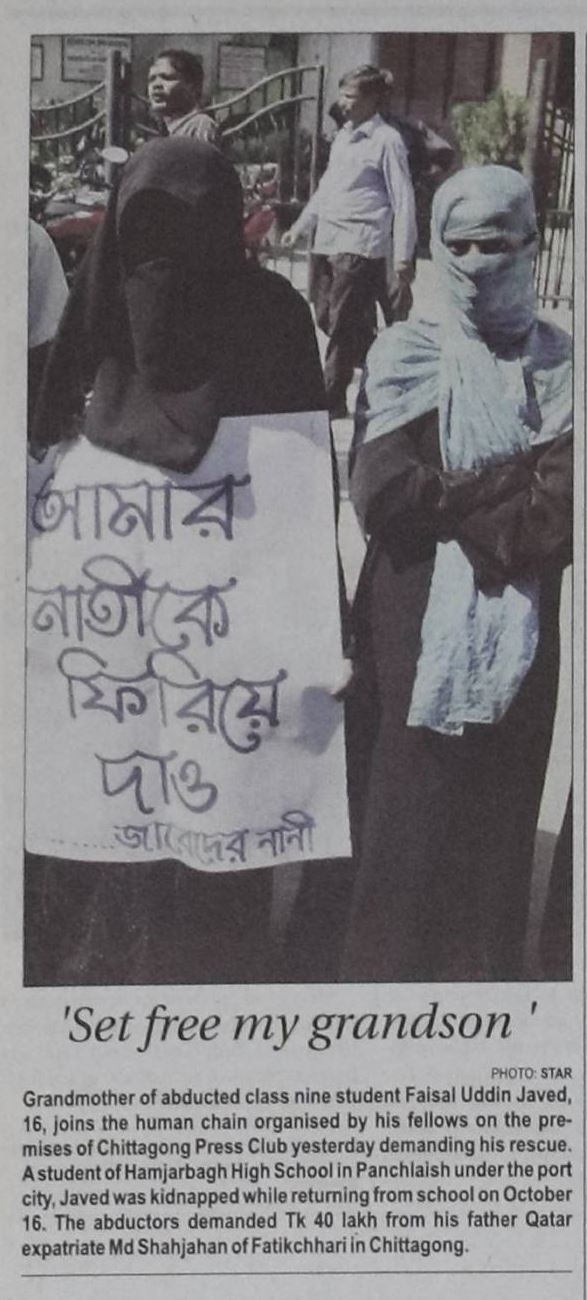 আমার
নাতীকে
ফিরিয়ে
দাও
......জাবেদের নানী
'Set free my grandson '
PHOTO: STAR
Grandmother of abducted class nine student Faisal Uddin Javed,
16, joins the human chain organised by his fellows on the pre-
mises of Chittagong Press Club yesterday demanding his rescue.
A student of Hamjarbagh High School in Panchlaish under the port
city, Javed was kidnapped while returning from school on October
16. The abductors demanded Tk 40 lakh from his father Qatar
expatriate Md Shahjahan of Fatikchhari in Chittagong.